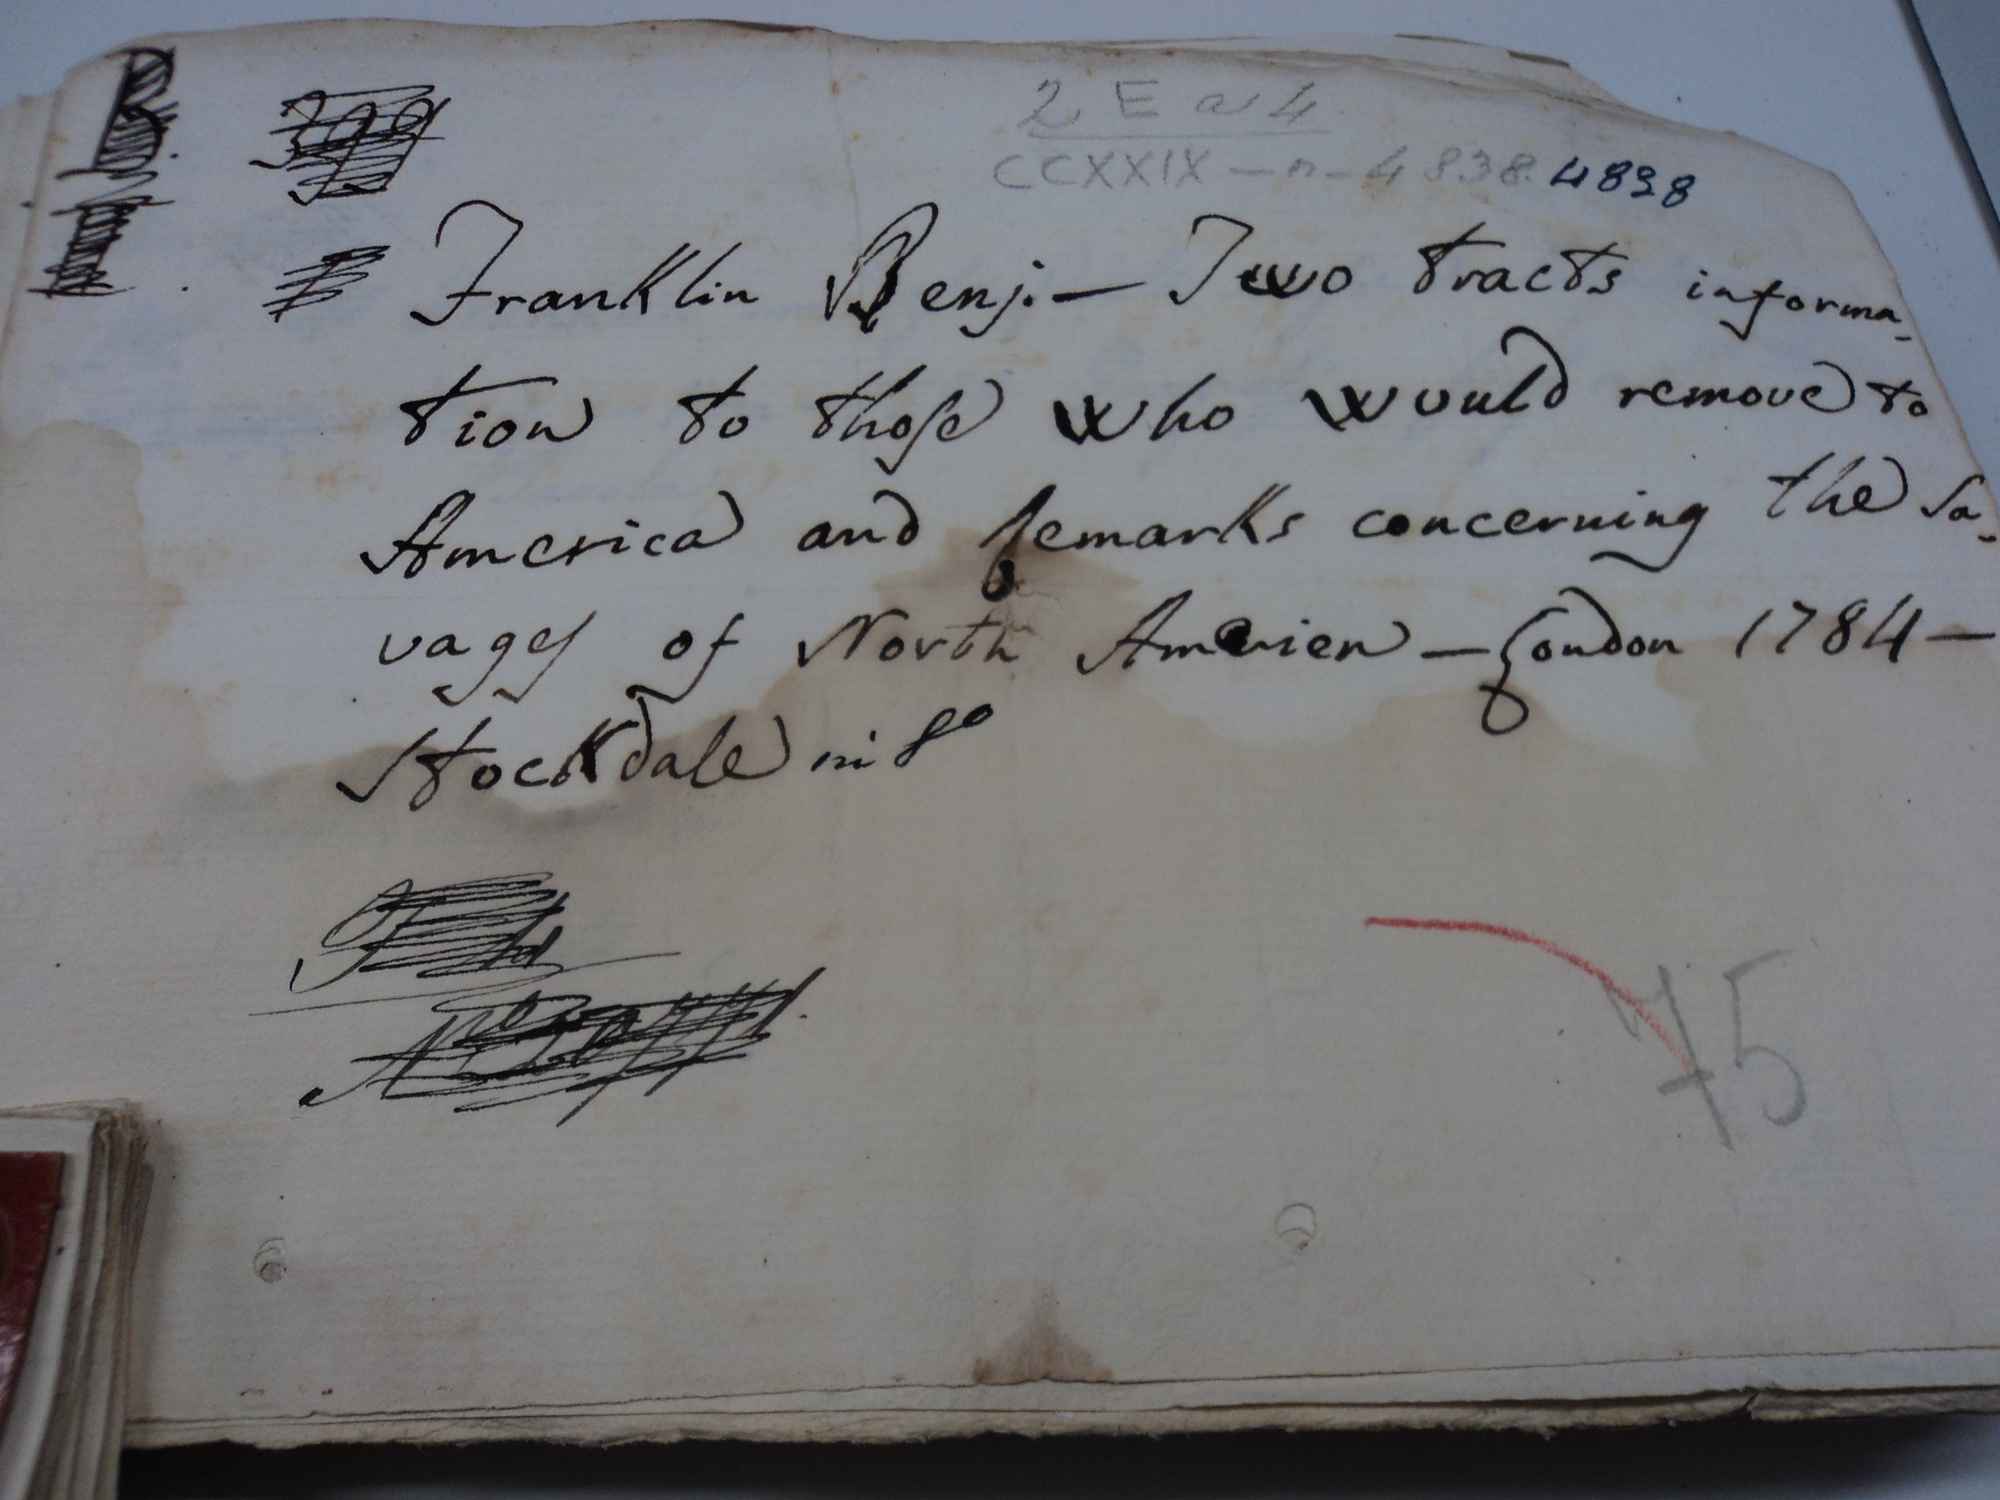 2 E a 4
CCXXIX - n - 4838 4838
Franklin Benj. — Two tracts informa-
tion to those who would remove to
America and remarks concerning the Sa-
vages of North America — London 1784 —
Stockdale in 8º
75